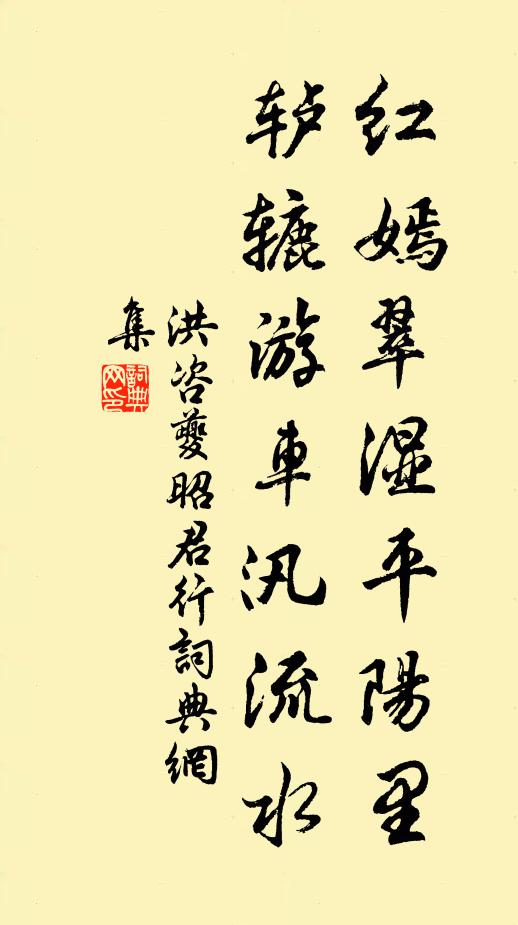 红嫣翠湿平陽里
轳辘游車汎流水
洪咨夔昭君行詞典網
集
詞典
网印